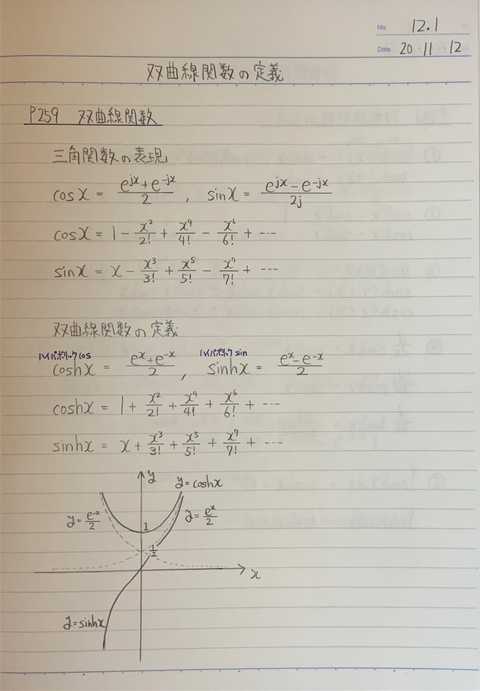 No. 12.1
Date 20・11・12
双曲線関数の定義
P259 双曲線関数
三角関数の表現
cosx = (e^jx + e^-jx)/2 , sinx = (e^jx - e^-jx)/2j
cosx = 1 - x²/2! + x⁴/4! - x⁶/6! + …
sinx = x - x³/3! + x⁵/5! - x⁷/7! + …
双曲線関数の定義
ハイパボリックcos ハイパボリックsin
coshx = (e^x + e^-x)/2 , sinhx = (e^x - e^-x)/2
coshx = 1 + x²/2! + x⁴/4! + x⁶/6! + …
sinhx = x + x³/3! + x⁵/5! + x⁷/7! + …
y y=coshx
y=e^-x/2 1 y=e^x/2
1/2
x
y=sinhx